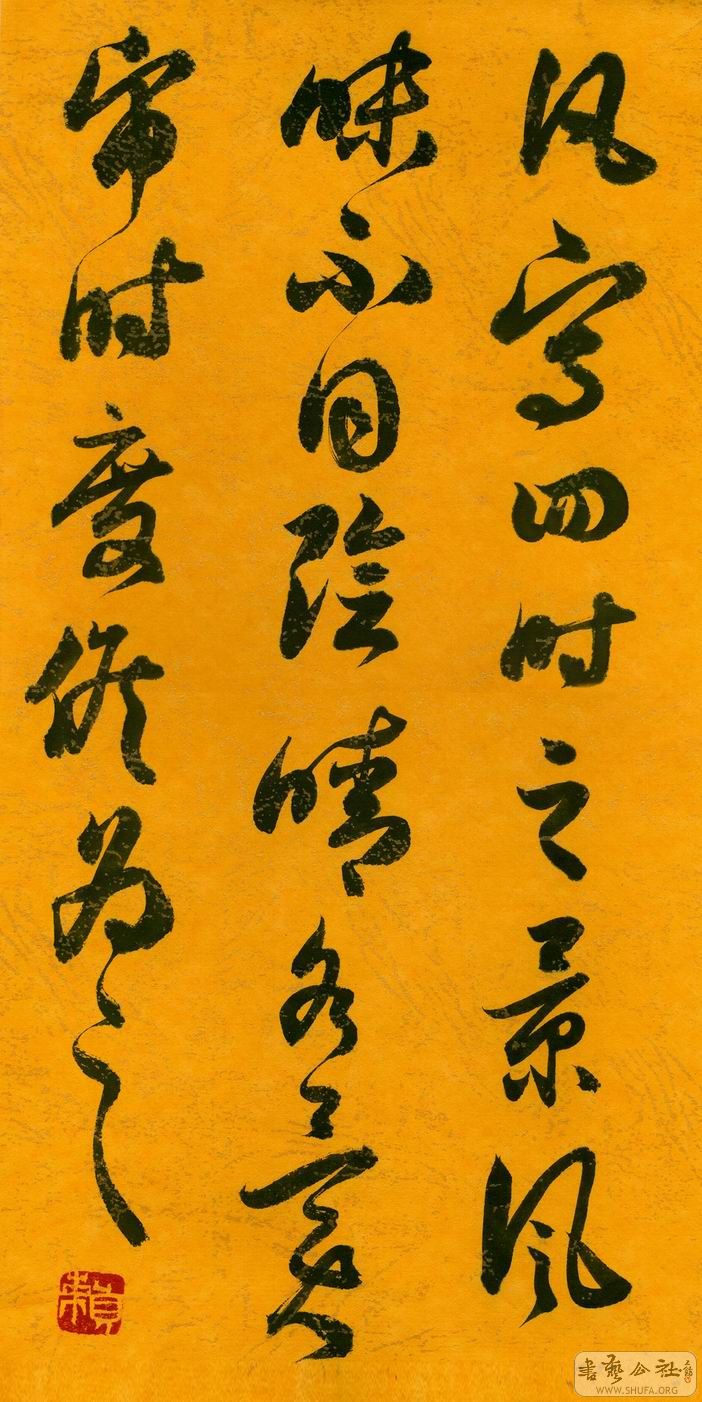 凡寫四时之景风
味不同陰晴各異
審时度候为之
書藝公社
WWW.SHUFA.ORG